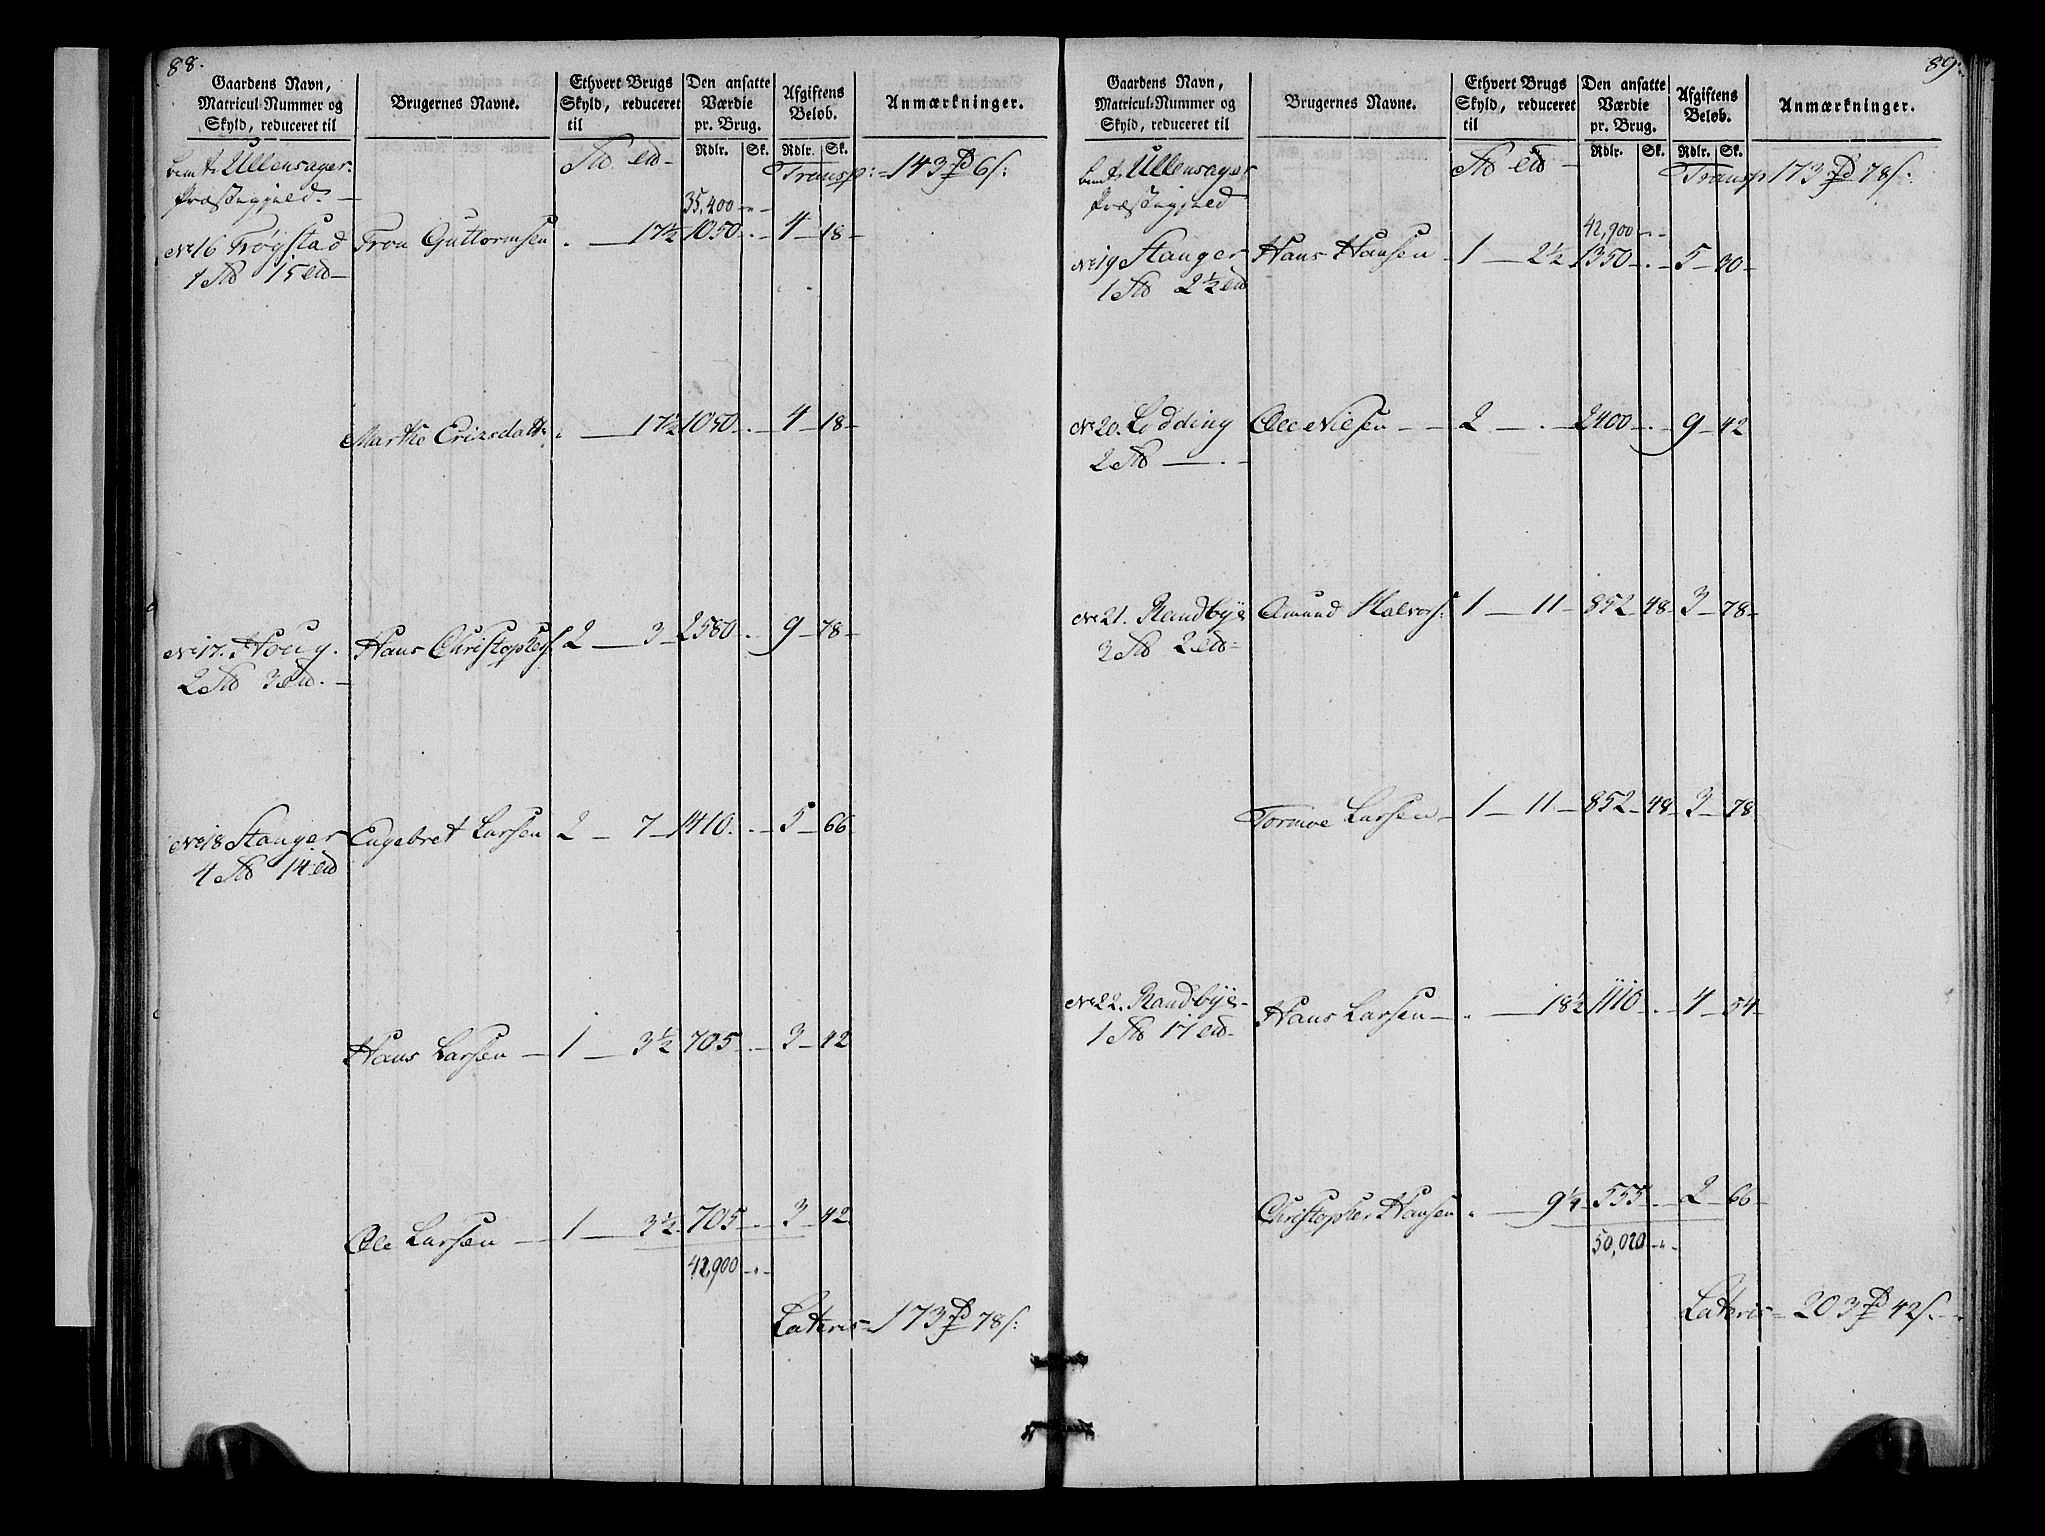 88.
Gaardens Navn, Matricul-Nummer og Skyld, reduceret til
Brugernes Navne.
Ethvert Brugs Skyld, reduceret til
Den ansatte Værdie pr. Brug.
Rdlr. Sk.
Afgiftens Beløb.
Rdlr. Sk.
Anmærkninger.
Ullensager Præstegjeld
Transp: 143 6 s:
35,400
No 16 Frøgstad Tron Guttormsen . 17½ 1050 . 4 18
15
Marthe Ericsdatt: . 17½ 1050 . 4 18
No 17. Houg. Hans Christophers: 2 3 2580 . 9 78
2 3
No 18 Stanger Engebret Larsen 2 7 1410 . 5 66
4 14
Hans Larsen 1 3½ 705 . 3 42
Ole Larsen 1 3½ 705 . 3 42
42,900
Lateris 173 78 s:
89.
Gaardens Navn, Matricul-Nummer og Skyld, reduceret til
Brugernes Navne.
Ethvert Brugs Skyld, reduceret til
Den ansatte Værdie pr. Brug.
Rdlr. Sk.
Afgiftens Beløb.
Rdlr. Sk.
Anmærkninger.
Ullensager Præstegjeld
Transp 173 78 s.
42,900
No 19 Stanger Hans Hansen 1 2½ 1350 . 5 30
1 2½
No 20. Lødding Ole Nilsen 2 . 2400 . 9 42
2
No 21. Randbye Amund Halvors: 1 11 852 48 3 78
2
Tormoe Larsen 1 11 852 48 3 78
No 22. Randbye Hans Larsen . 18½ 1110 . 4 54
1 17
Christopher Hansen . 9¼ 555 . 2 66
50,020
Lateris 203 42 s.